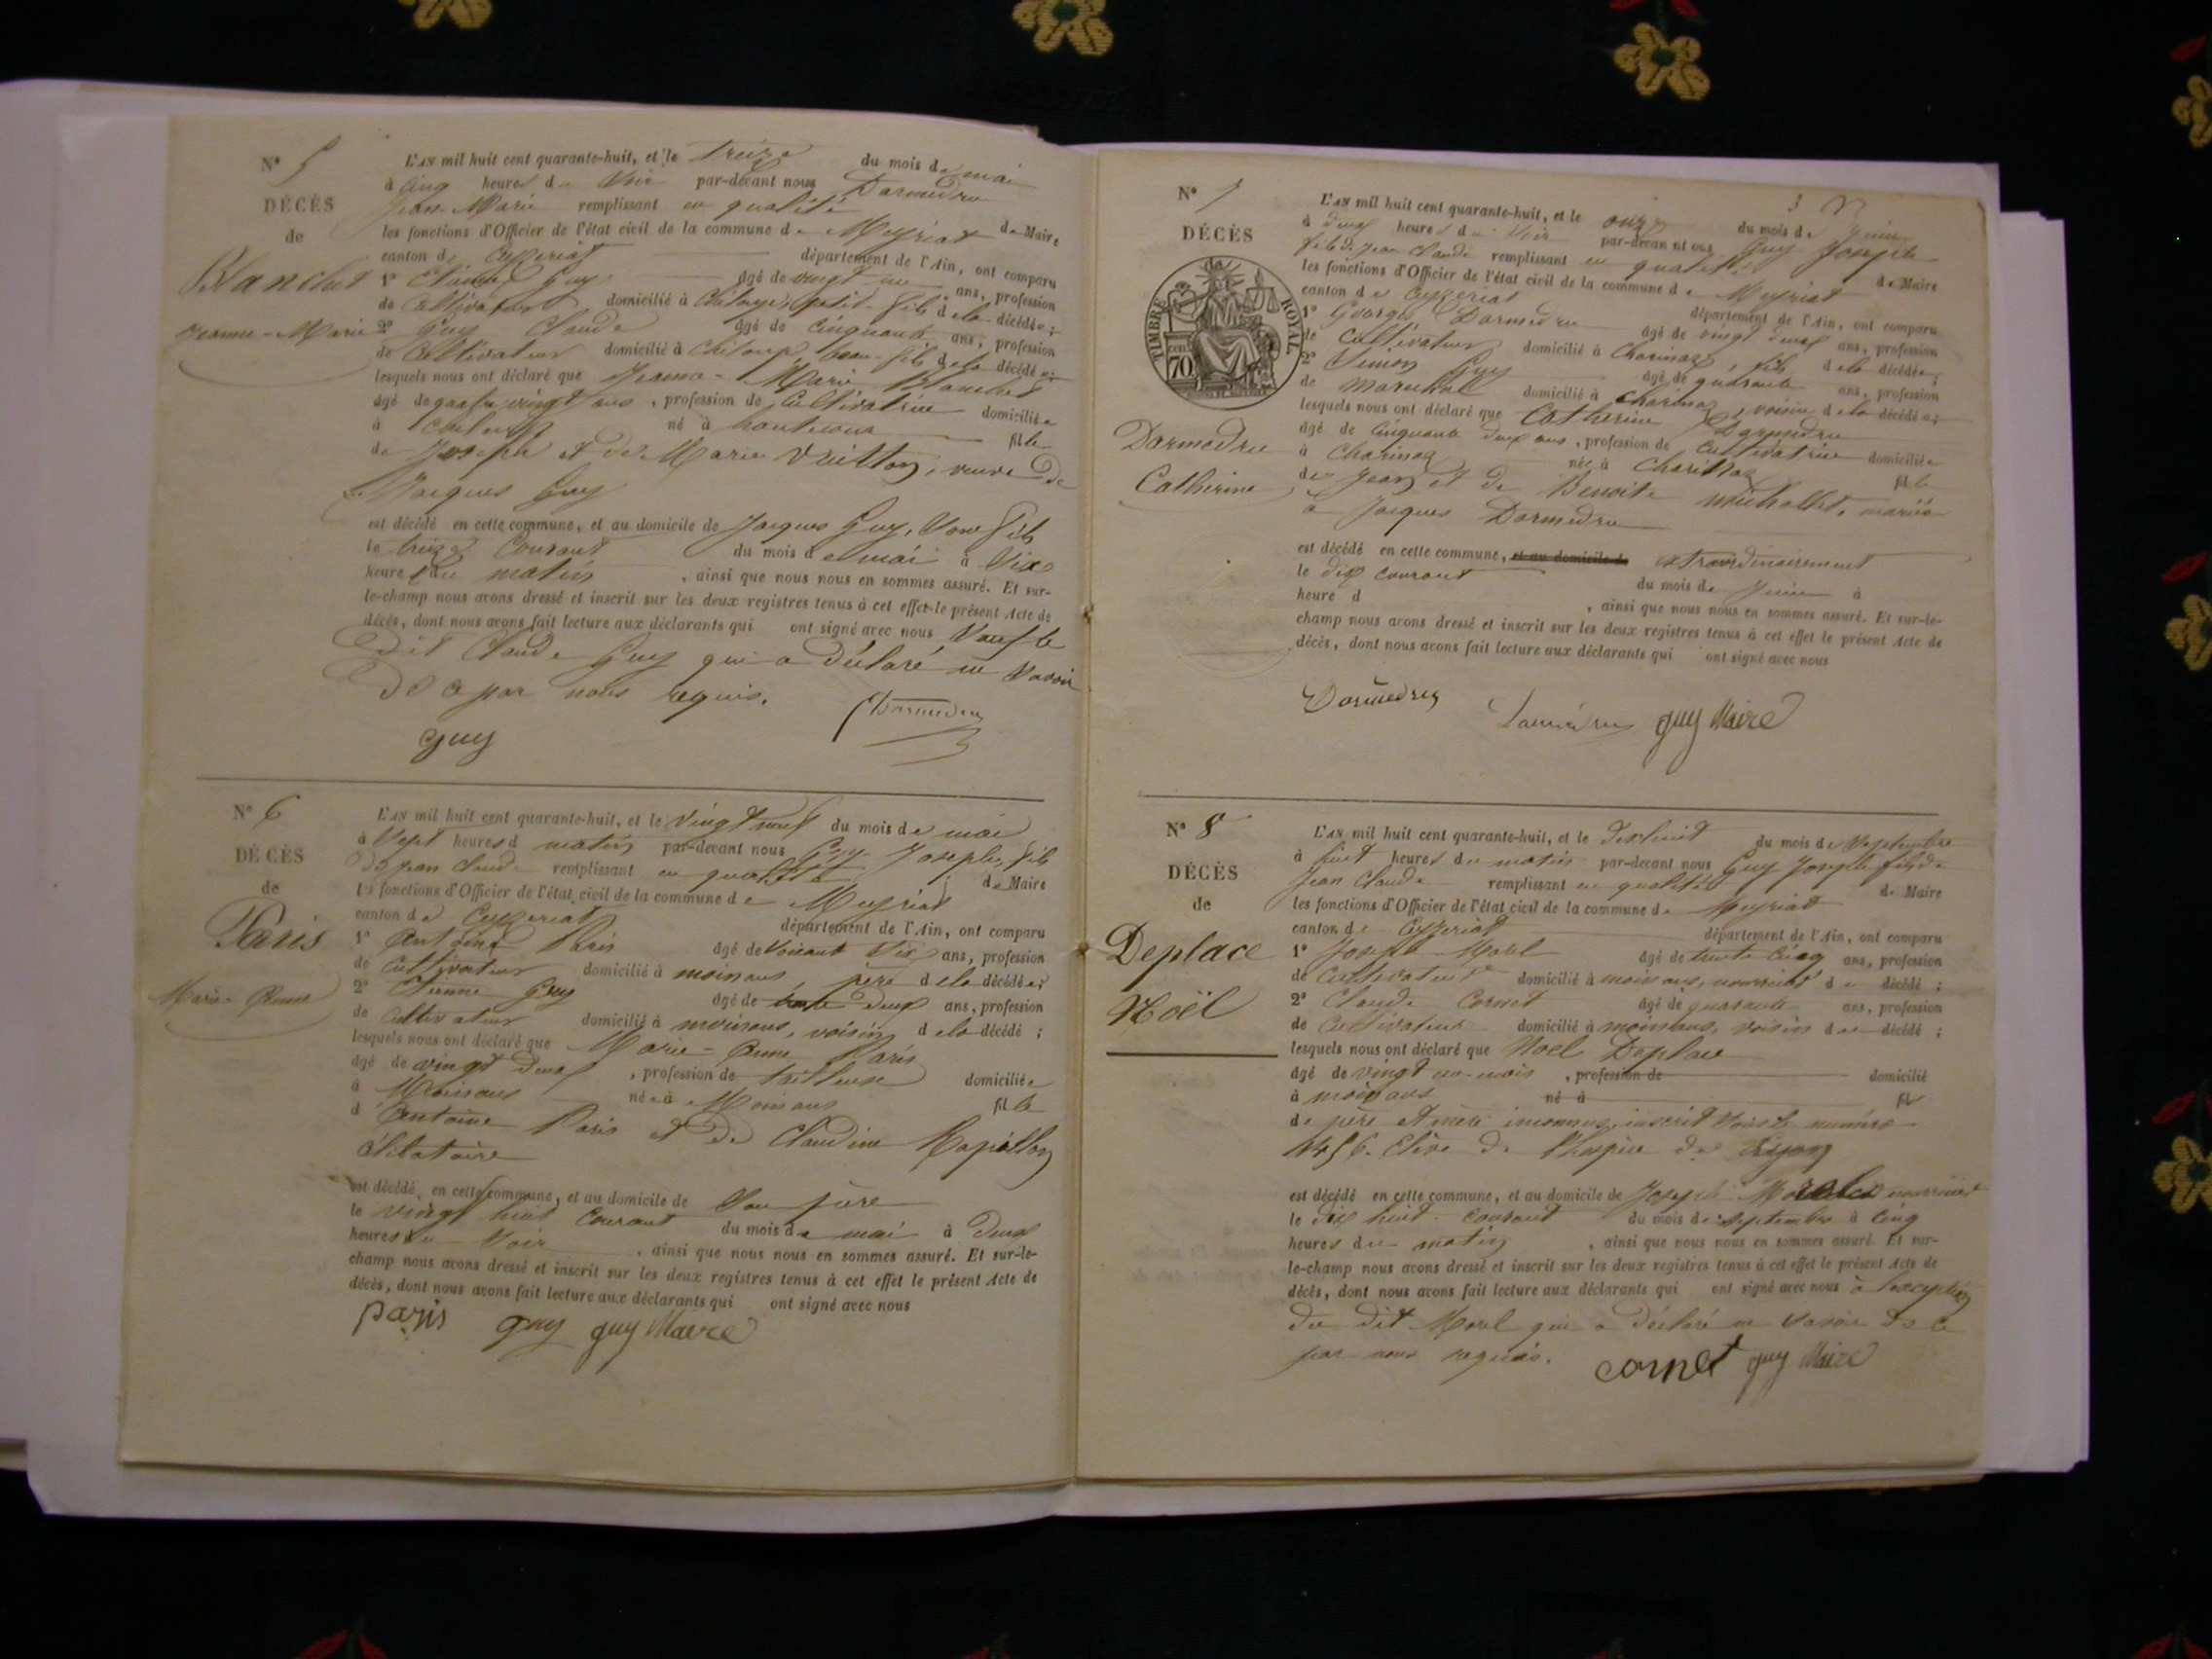 N° 5
DÉCÈS
de
Blanchet
Jeanne-Marie
L'AN mil huit cent quarante-huit, et le treize du mois de mai
à cinq heures du soir par-devant nous Darmedru
Jean-Marie remplissant en qualité de Maire
les fonctions d'Officier de l'état civil de la commune de Meyriat
canton de Ceyzeriat département de l'Ain, ont comparu
1° Etienne Guy âgé de vingt ans, profession
de Cultivateur domicilié à petit-fils de la décédée;
2° Guy Claude âgé de cinquante ans, profession
de Cultivateur domicilié à beau-fils de la décédée;
lesquels nous ont déclaré que Jeanne-Marie Blanchet
âgé de quatre vingt ans, profession de Cultivatrice domiciliée
à né à fille
de Joseph et de Marie Vuitton, veuve de
Jacques Guy
est décédé en cette commune, et au domicile de Jacques Guy, son fils
le treize courant du mois de mai à six
heures du matin, ainsi que nous nous en sommes assuré. Et sur-
le-champ nous avons dressé et inscrit sur les deux registres tenus à cet effet le présent Acte de
décès, dont nous avons fait lecture aux déclarants qui ont signé avec nous sauf le
dit Claude Guy qui a déclaré ne savoir
de ce par nous requis.
Darmedru
guy
N° 6
DÉCÈS
de
Paris
Marie-Anne
L'AN mil huit cent quarante-huit, et le vingt neuf du mois de mai
à sept heures d matin par-devant nous Guy Joseph, fils
de jean Claude remplissant en qualité de Maire
les fonctions d'Officier de l'état civil de la commune de Meyriat
canton de Ceyzeriat département de l'Ain, ont comparu
1° Antoine Paris âgé de soixante six ans, profession
de Cultivateur domicilié à moinans, père de la décédée;
2° Etienne Guy âgé de trente deux ans, profession
de Cultivateur domicilié à moinans, voisin de la décédé;
lesquels nous ont déclaré que Marie-Anne Paris
âgé de vingt deux, profession de tailleuse domiciliée
à Moinans née à Moinans fille
d'Antoine Paris et de Claudine
célibataire
est décédé en cette commune, et au domicile de son père
le vingt huit courant du mois de mai à deux
heures du soir, ainsi que nous nous en sommes assuré. Et sur-le-
champ nous avons dressé et inscrit sur les deux registres tenus à cet effet le présent Acte de
décès, dont nous avons fait lecture aux déclarants qui ont signé avec nous
paris guy guy Maire
N° 7
DÉCÈS
TIMBRE ROYAL
70
Darmedru
Catherine
3
L'AN mil huit cent quarante-huit, et le onze du mois de juin
à deux heures du soir par-devant nous Guy Joseph
fils de jean Claude remplissant en qualité de Maire
les fonctions d'Officier de l'état civil de la commune de Meyriat
canton de Ceyzeriat département de l'Ain, ont comparu
1° George Darmedru âgé de vingt deux ans, profession
de Cultivateur domicilié à Charinaz fils de la décédée;
2° Simon Guy âgé de quarante ans, profession
de Marechal domicilié à Charinaz, voisin de la décédée;
lesquels nous ont déclaré que Catherine Darmedru
âgé de cinquante deux ans, profession de Cultivatrice domiciliée
à Charinaz née à Charinaz fille
de Jean et de Benoite Michallet, mariée
à Jacques Darmedru
est décédé en cette commune, et au domicile de extraordinairement
le dix courant du mois de Juin à
heure d, ainsi que nous nous en sommes assuré. Et sur-le-
champ nous avons dressé et inscrit sur les deux registres tenus à cet effet le présent Acte de
décès, dont nous avons fait lecture aux déclarants qui ont signé avec nous
Darmedru Darmedru guy Maire
N° 8
DÉCÈS
de
Deplace
Noël
L'AN mil huit cent quarante-huit, et le dixhuit du mois de Septembre
à huit heures du matin par-devant nous Guy Joseph fils de
Jean Claude remplissant en qualité de Maire
les fonctions d'Officier de l'état civil de la commune de Meyriat
canton de Ceyzeriat département de l'Ain, ont comparu
1° Joseph Morel âgé de trente cinq ans, profession
de Cultivateur domicilié à moinans, nourricier du décédé;
2° Claude Cornet âgé de quarante ans, profession
de Cultivateur domicilié à moinans, voisin du décédé;
lesquels nous ont déclaré que Noël Deplace
âgé de vingt un mois, profession de domicilié
à moinans né à fil
de père et mère inconnus, inscrit sous le numéro
1456. Elève de l'hospice de Lyon
est décédé en cette commune, et au domicile de Joseph Morel son nourricier
le dix huit courant du mois de Septembre à cinq
heures du matin, ainsi que nous nous en sommes assuré. Et sur-
le-champ nous avons dressé et inscrit sur les deux registres tenus à cet effet le présent Acte de
décès, dont nous avons fait lecture aux déclarants qui ont signé avec nous à l'exception
du dit Morel qui a déclaré ne savoir de ce
par nous requis. cornet guy Maire